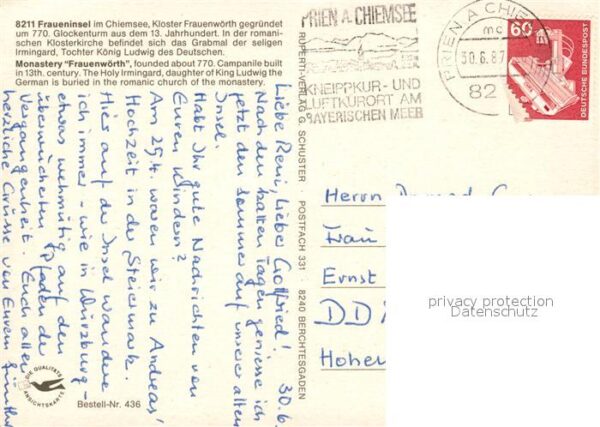 8211 Fraueninsel im Chiemsee, Kloster Frauenwörth gegründet
um 770. Glockenturm aus dem 13. Jahrhundert. In der romani-
schen Klosterkirche befindet sich das Grabmal der seligen
Irmingard, Tochter König Ludwig des Deutschen.
Monastery "Frauenwörth", founded about 770. Campanile built
in 13th. century. The Holy Irmingard, daughter of King Ludwig the
German is buried in the romanic church of the monastery.
30.6.
Liebe Reni, liebe Gottfried!
Nach den kalten Tagen geniesse ich
jetzt den Sommer auf unserer alten
Insel.
Habt Ihr gute Nachrichten von
Euren Kindern?
Am 25.4. waren wir zu Andreas'
Hochzeit in der Steiermark.
Hier auf der Insel wandere
ich immer - wie in Würzburg -
etwas wehmütig auf den
Pfaden der
Vergangenheit. Euch allen
herzliche Grüsse von Eurem Günther
DIE QUALITÄTS
ANSICHTSKARTE
Bestell-Nr. 436
RUPERTI-VERLAG G. SCHUSTER POSTFACH 331 · 8240 BERCHTESGADEN
PRIEN A. CHIEMSEE
KNEIPPKUR- UND
LUFTKURORT AM
BAYERISCHEN MEER
PRIEN A CHIE
mc
30.6.87
82
60
DEUTSCHE BUNDESPOST
Herrn
Frau
Ernst
DD
Hohen
privacy protection
Datenschutz